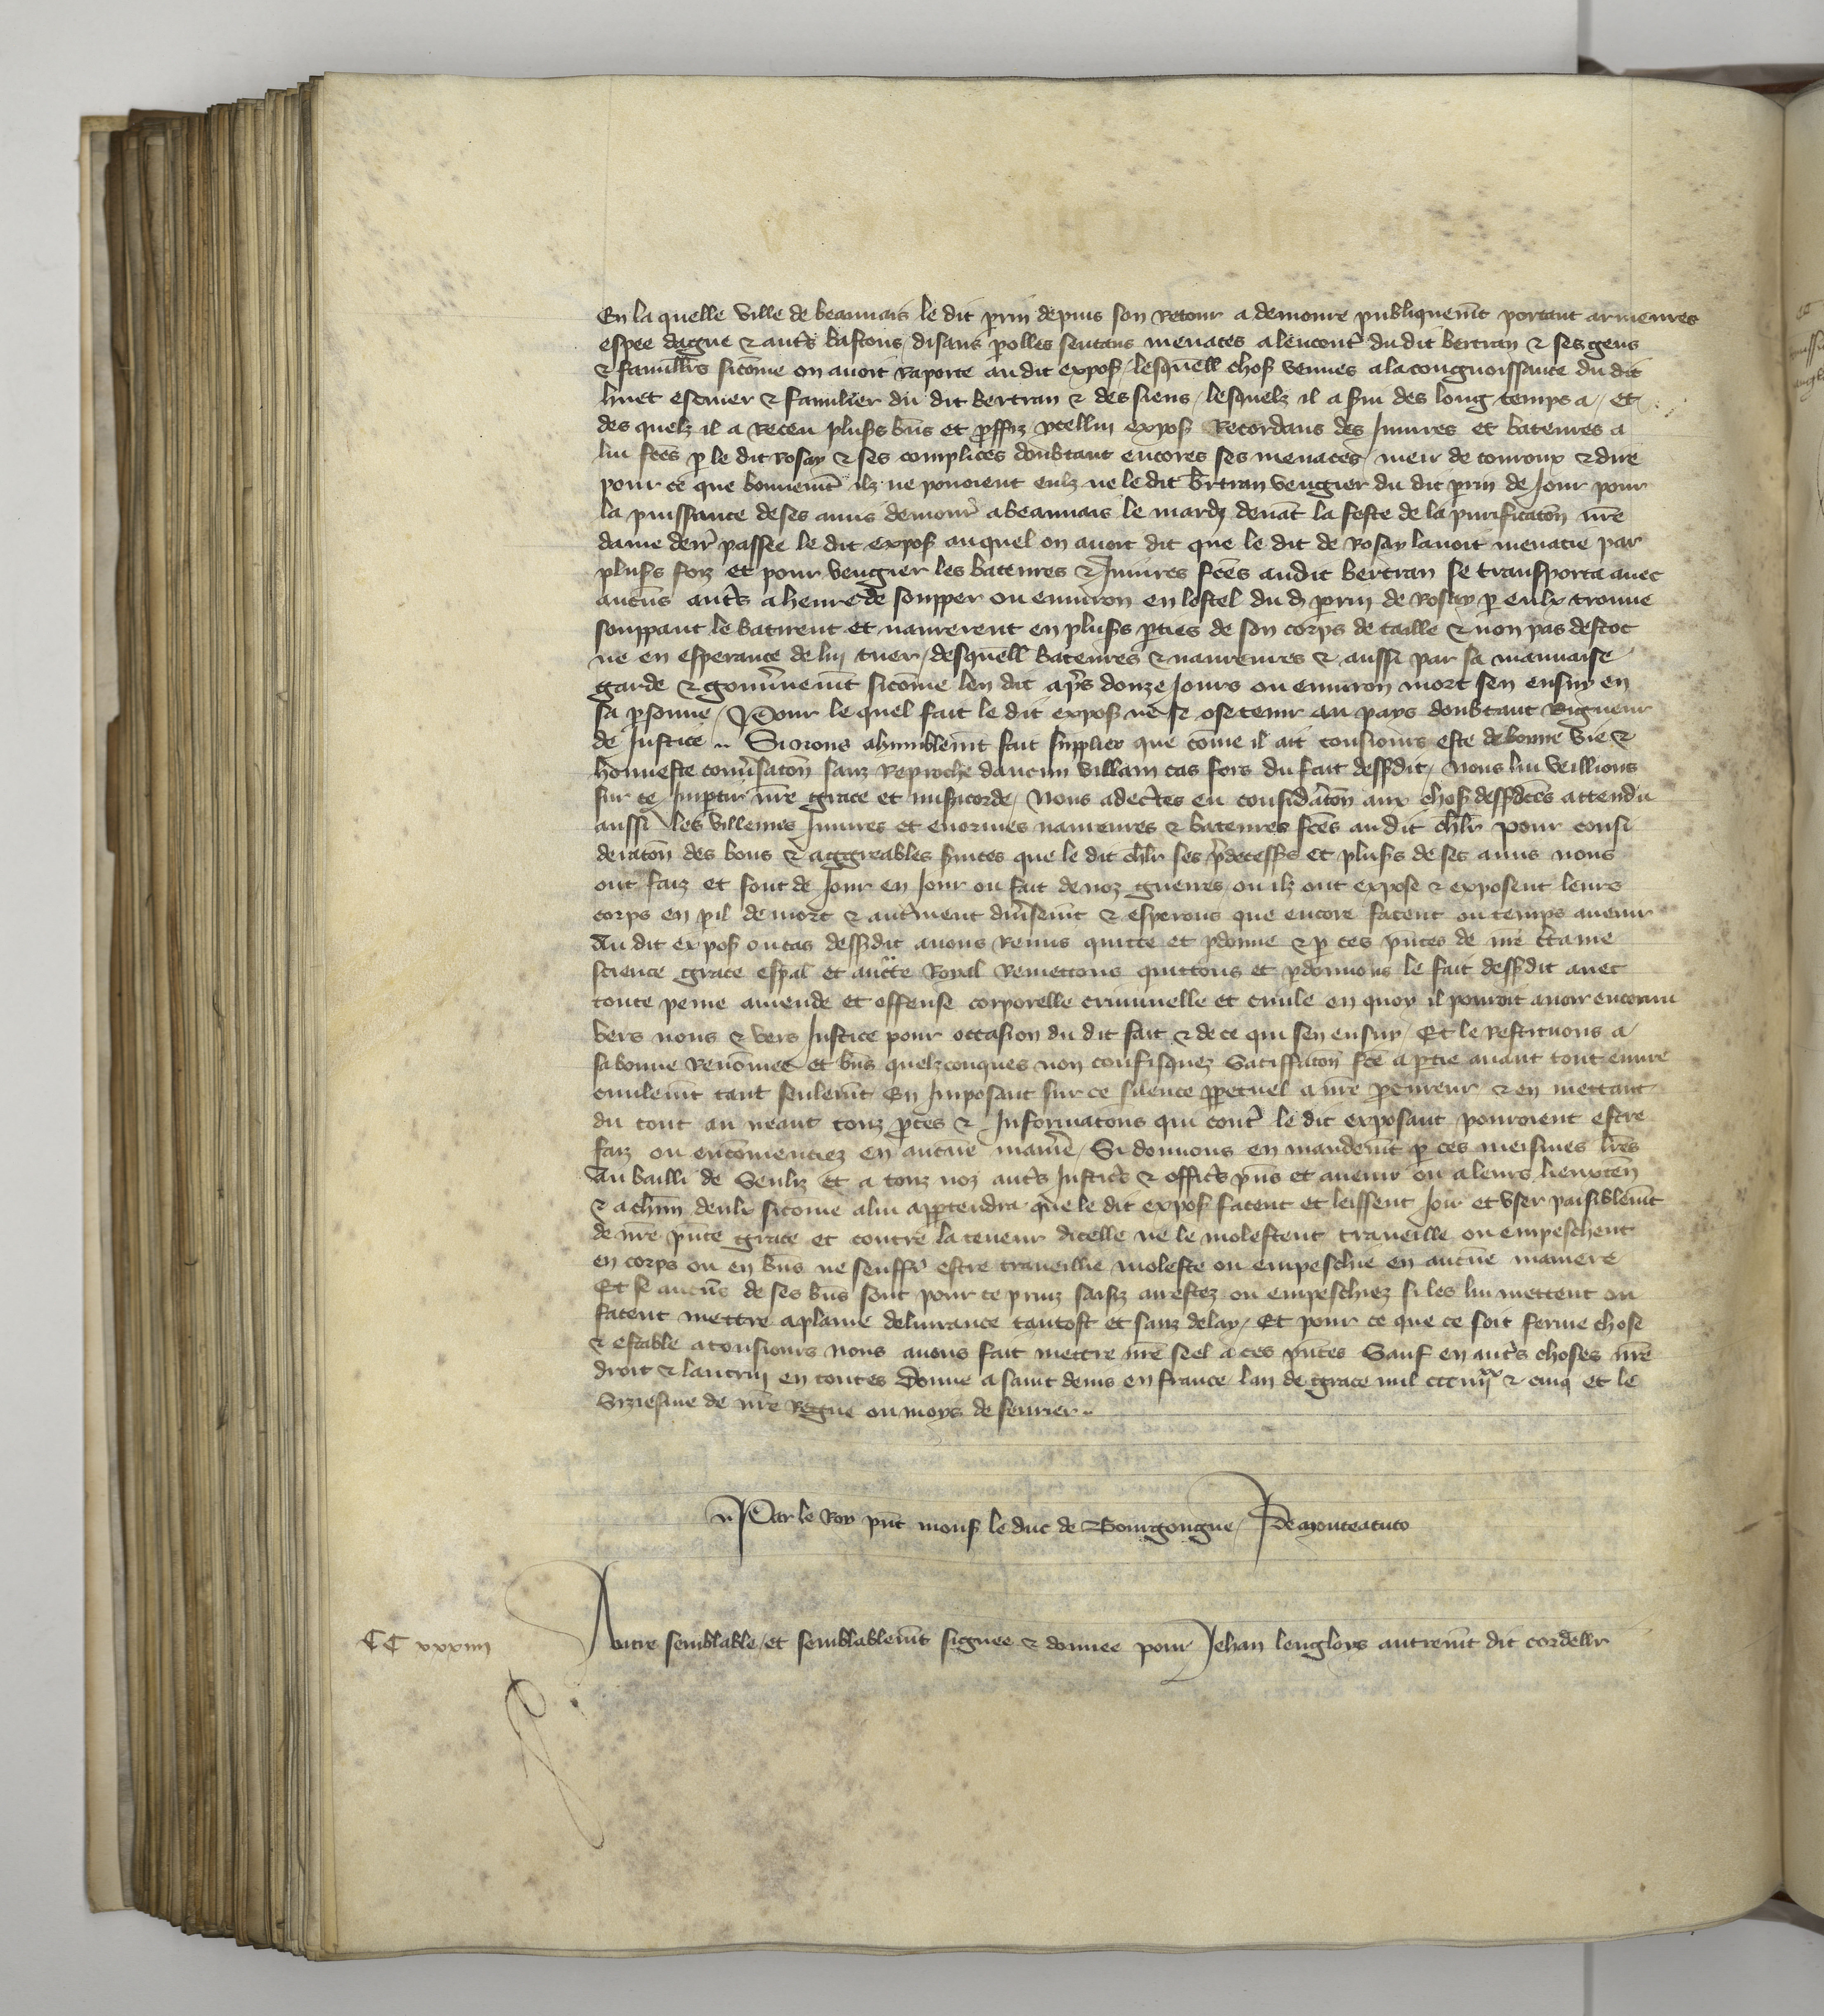 En la quelle ville de beauuais le dit perrin depuis son Retour a demoure publiquemt portant armeures
espee dague & autrs bastons disans parolles sentans menaces alencontr du dit bertran & ses gens
& familliers sicome on auoit raporte audit expos / lesquell chos venues a la congnoissance du dit
huet escuier & familier du dit bertran & des siens / lesquelz il a serui des long temps a / Et
des quelz il a receu plus's bns et prffiz ycellui expos Recordans des Iniures et bateures a
lui fces p le dit Rosay & ses complices doubtant encores ses menaces / meu de couroux & dire
pour ce que bonnemt ilz ne pouoient eulz ne le dit brtran vengier du dit perrin de Jour pour
la puissance de ses amis demour a beauuais le mardi deuat la feste de la purificaton nre
dame derr passee le dit expos auquel on auoit dit que le dit de Rosay lauoit menacie par
plus's foiz et pour vengier les bateures & Iniures fces audit bertran se transporta auec
aucus autrs a heure de soupper ou enuiron en lostel du d perrin de Rosay p eulx trouue
souppant le batirent et naurerent en plus's parties de son corps de taille & non pas destoc
ne en esperance de luy tuer / desquell bateures & naureures & aussi par sa mauuaise
garde & gouunemt sicome len dit aprs douze Jours ou enuiron mort sen ensuy en
sa personne / Pour le quel fait le dit expos ne se ose tenir au pays doubtant Rigueur
de Justice .. Si nous a humblemt fait supplier que come il ait tousiours este de bonne vie &
honneste conusaton sanz Reproche daucun villain cas fors du fait dessdit / Nous lui veillions
sur ce Impartir nre grace et misricorde / Nous adectes en considaton aux chos dessdces attendu
aussi les villennes Iniures et enormes naureures & bateures fces au dit chlr pour consi
deraton des bons & aggreables suices que le dit chlr ses pdecess's et plus's de ses amis nous
ont faiz et font de Jour en Jour ou fait de noz guerres / ou ilz ont expose & exposent leurs
corps en pil de mort & autrment diusemt & esperons que encore facent ou temps auenir
Au dit expos ou cas dessdit auons Remis quitte et pdonne & p ces pntes de nre ctaine
science grace espal et aucte Royal Remettons quittons et pdonnons le fait dessdit auec
toute peine amende et offense corporelle criminelle et ciuile en quoy il pourroit auoir encouru
vers nous & vers Justice pour occasion du dit fait & de ce qui sen ensuy / Et le Restituons a
sa bonne Renomee et bns quelzconques non confisquez Satiffacton fce a ptie auant tout euure
ciuilemt tant seulemt En Imposant sur ce silence ppetuel a nre pcureur & en mettant
du tout au neant touz pces & Informatons qui contr le dit exposant pourroient estre
faiz ou encomenciez en aucune maniere / Si donnons en mandemt p ces meismes lres
Au bailli de Senliz et a touz noz autrs Justicrs & officrs pns et auenir ou a leurs lieuxten
& a chun deulx sicome a lui appartendra que le dit expos facent et leissent Joir et vser paisiblemt
de nre pnte grace et contre la teneur dicelle ne le molestent traueille ou empeschent
en corps ou en bns ne seuffr estre traueillie moleste ou empeschie en aucune maniere
Et se aucus de ses bns sont pour ce prinz saisiz arrestez ou empeschiez si les lui mettent ou
facent mettre a plaine deliurance tantost et sanz delay / Et pour ce que ce soit ferme chose
& estable a tousiours nous auons fait mettre nre seel a ces pntes Sauf en autrs choses nre
droit & lautruy en toutes Donne a saint denis en france / lan de grace mil ccciiijxx & cinq et le
Sixiesme de nre Regne ou moys de feurier ..
Par le Roy pnt mons le duc de Bourgongne / P de monteacuto
CC xxxiiii Autre semblable / et semblablemt signee & donnee pour Jehan lengloys autremt dit cordellr